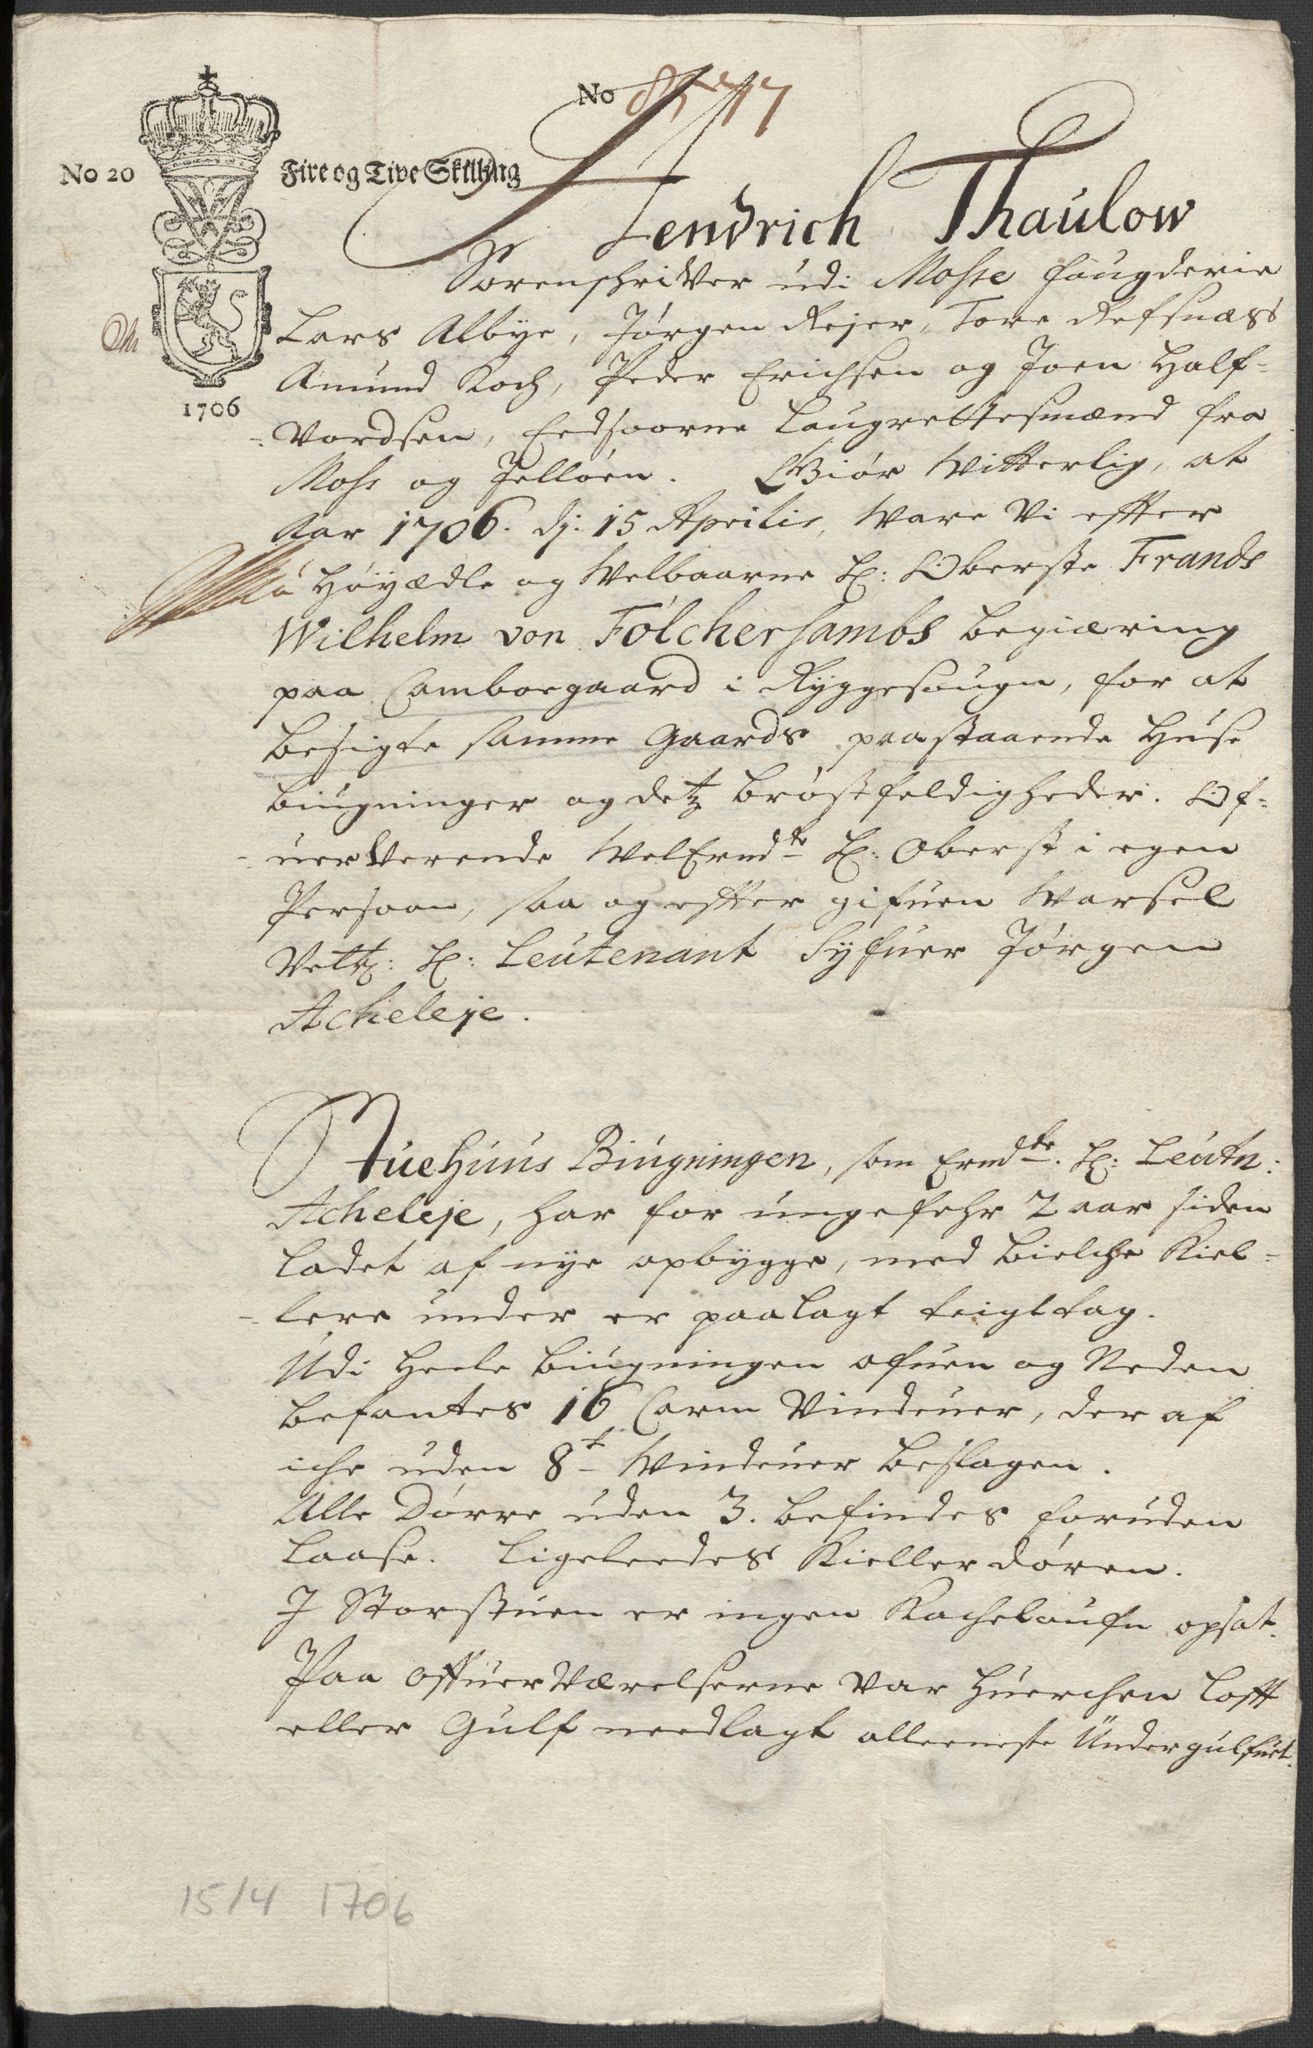 No 8577
No 20 Fire og Tive Skilling
Hendrich Thaulow
1706
Sorenschriver udi Mosse fougderie
Lars Albye, Jørgen Rejer, Tore Refsnæs
Amund Koch, Peder Erichsen og Joen Half-
-vordsen, Eedsoorne Laugrettesmænd fra
Moss og Jelløen. Giør Witterlig, at
Aar 1706. dj: 15 Aprilis, Ware Vi effter
Høyædle og Welbaarne H: Oberste Frands
Wilhelm von Fölchersambs begiæring
paa Camboegaard i Ryggesougn, for at
besigte samme gaards paastaaende Huse
biugninger og detz brøstfeldigheder. Of-
-uerVerende WelErmdte H: Oberst i egen
Persoon, saa og effter gifuen Warsel
Vettz: H: Leutenant Syfuer Jørgen
Acheleje.
Stuehuus Biugningen, som Ermdte. H: Leutn:
Acheleje, har for ungefehr 2 aar siden
ladet af nye opbygge, med bielche Kiel-
-lere under er paalagt teigltag.
Udi heele biugningen ofuen og Neden
befantes 16 Carm Vinduer, der af
iche uden 8t Winduer beslagen.
Alle Dørre uden 3. befindes foruden
Laase. Ligeleedes Kieller døren.
I Storstuen er ingen Kacheloufn opsat.
Paa offuerværelserne var huerchen Lofft
eller Gulf needlagt alleeneste Undergulfuet.
15/4 1706